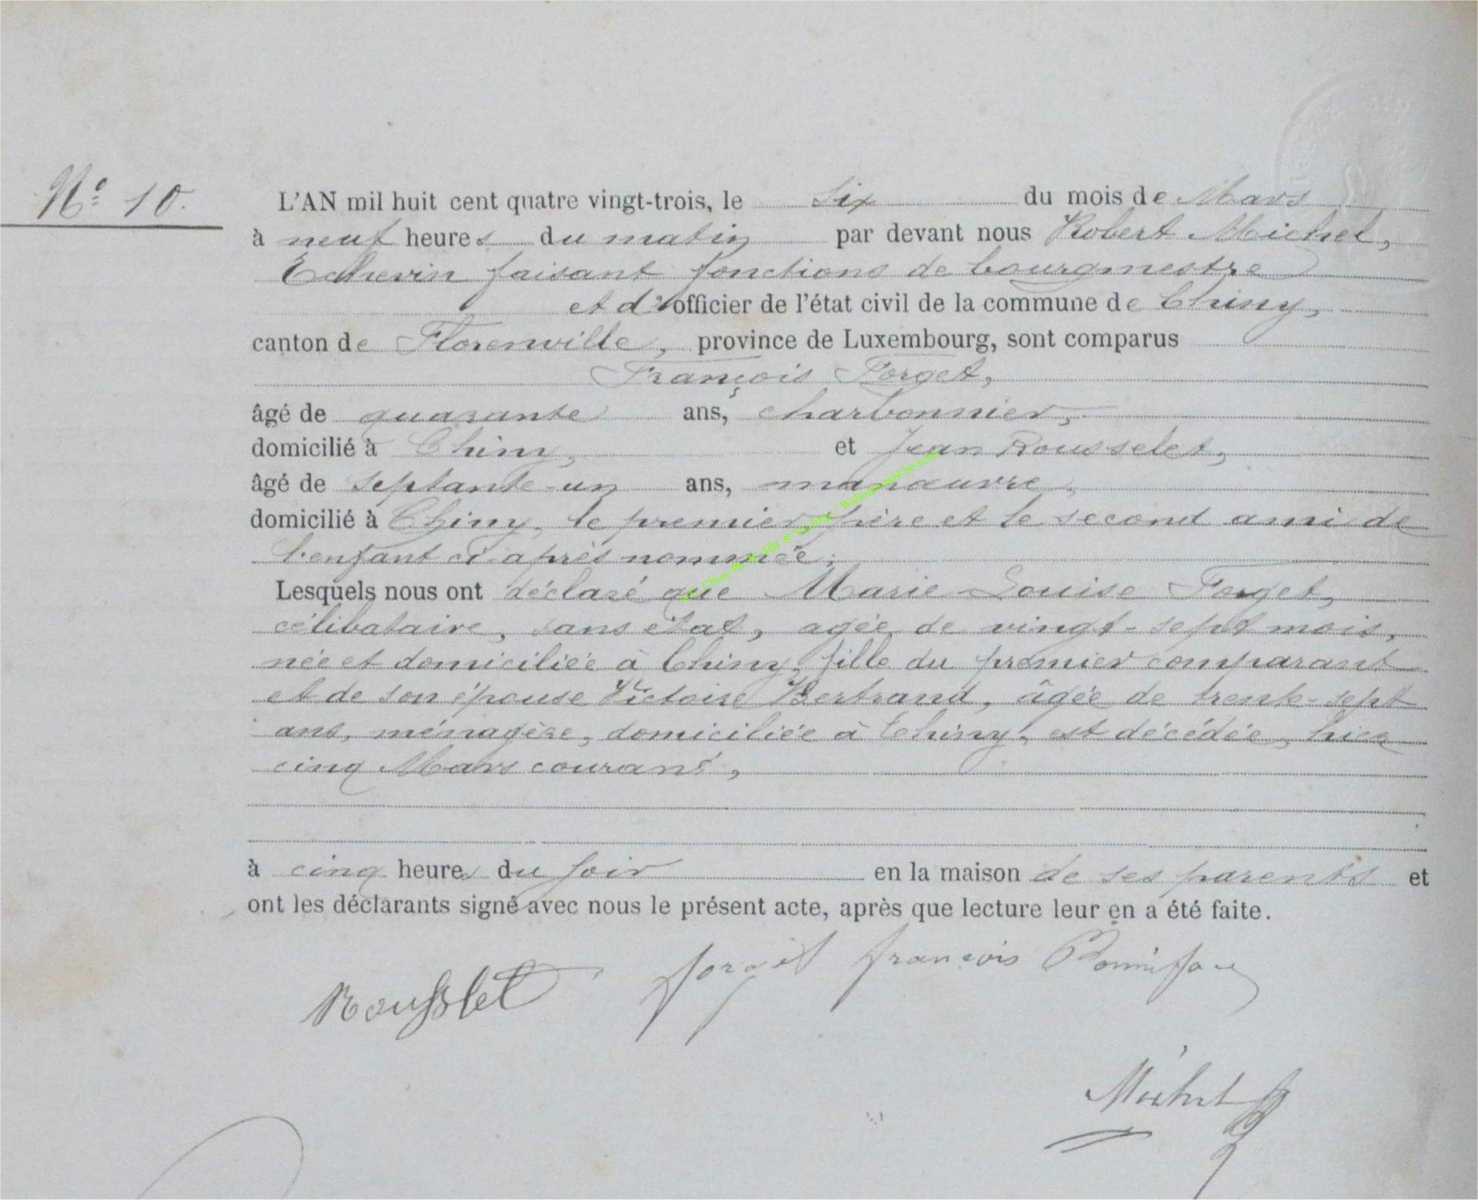 N° 10.
L'AN mil huit cent quatre vingt-trois, le six du mois de Mars
à neuf heures du matin par devant nous Robert Michel,
Echevin faisant fonctions de bourgmestre
et d'officier de l'état civil de la commune de Chiny,
canton de Florenville, province de Luxembourg, sont comparus
François Forget,
âgé de quarante ans, charbonnier,
domicilié à Chiny, et Jean Rousselet,
âgé de septante-un ans, manœuvre,
domicilié à Chiny, le premier, père et le second ami de
l'enfant ci-après nommée;
Lesquels nous ont déclaré que Marie Louise Forget,
célibataire, sans état, agée de vingt-sept mois,
née et domiciliée à Chiny, fille du premier comparant
et de son épouse Victoire Bertrand, âgée de trente-sept
ans, ménagère, domiciliée à Chiny, est décédée, hier
cinq Mars courant,
à cinq heures du soir en la maison de ses parents et
ont les déclarants signé avec nous le présent acte, après que lecture leur en a été faite.
Rousslet forget françois
Michel